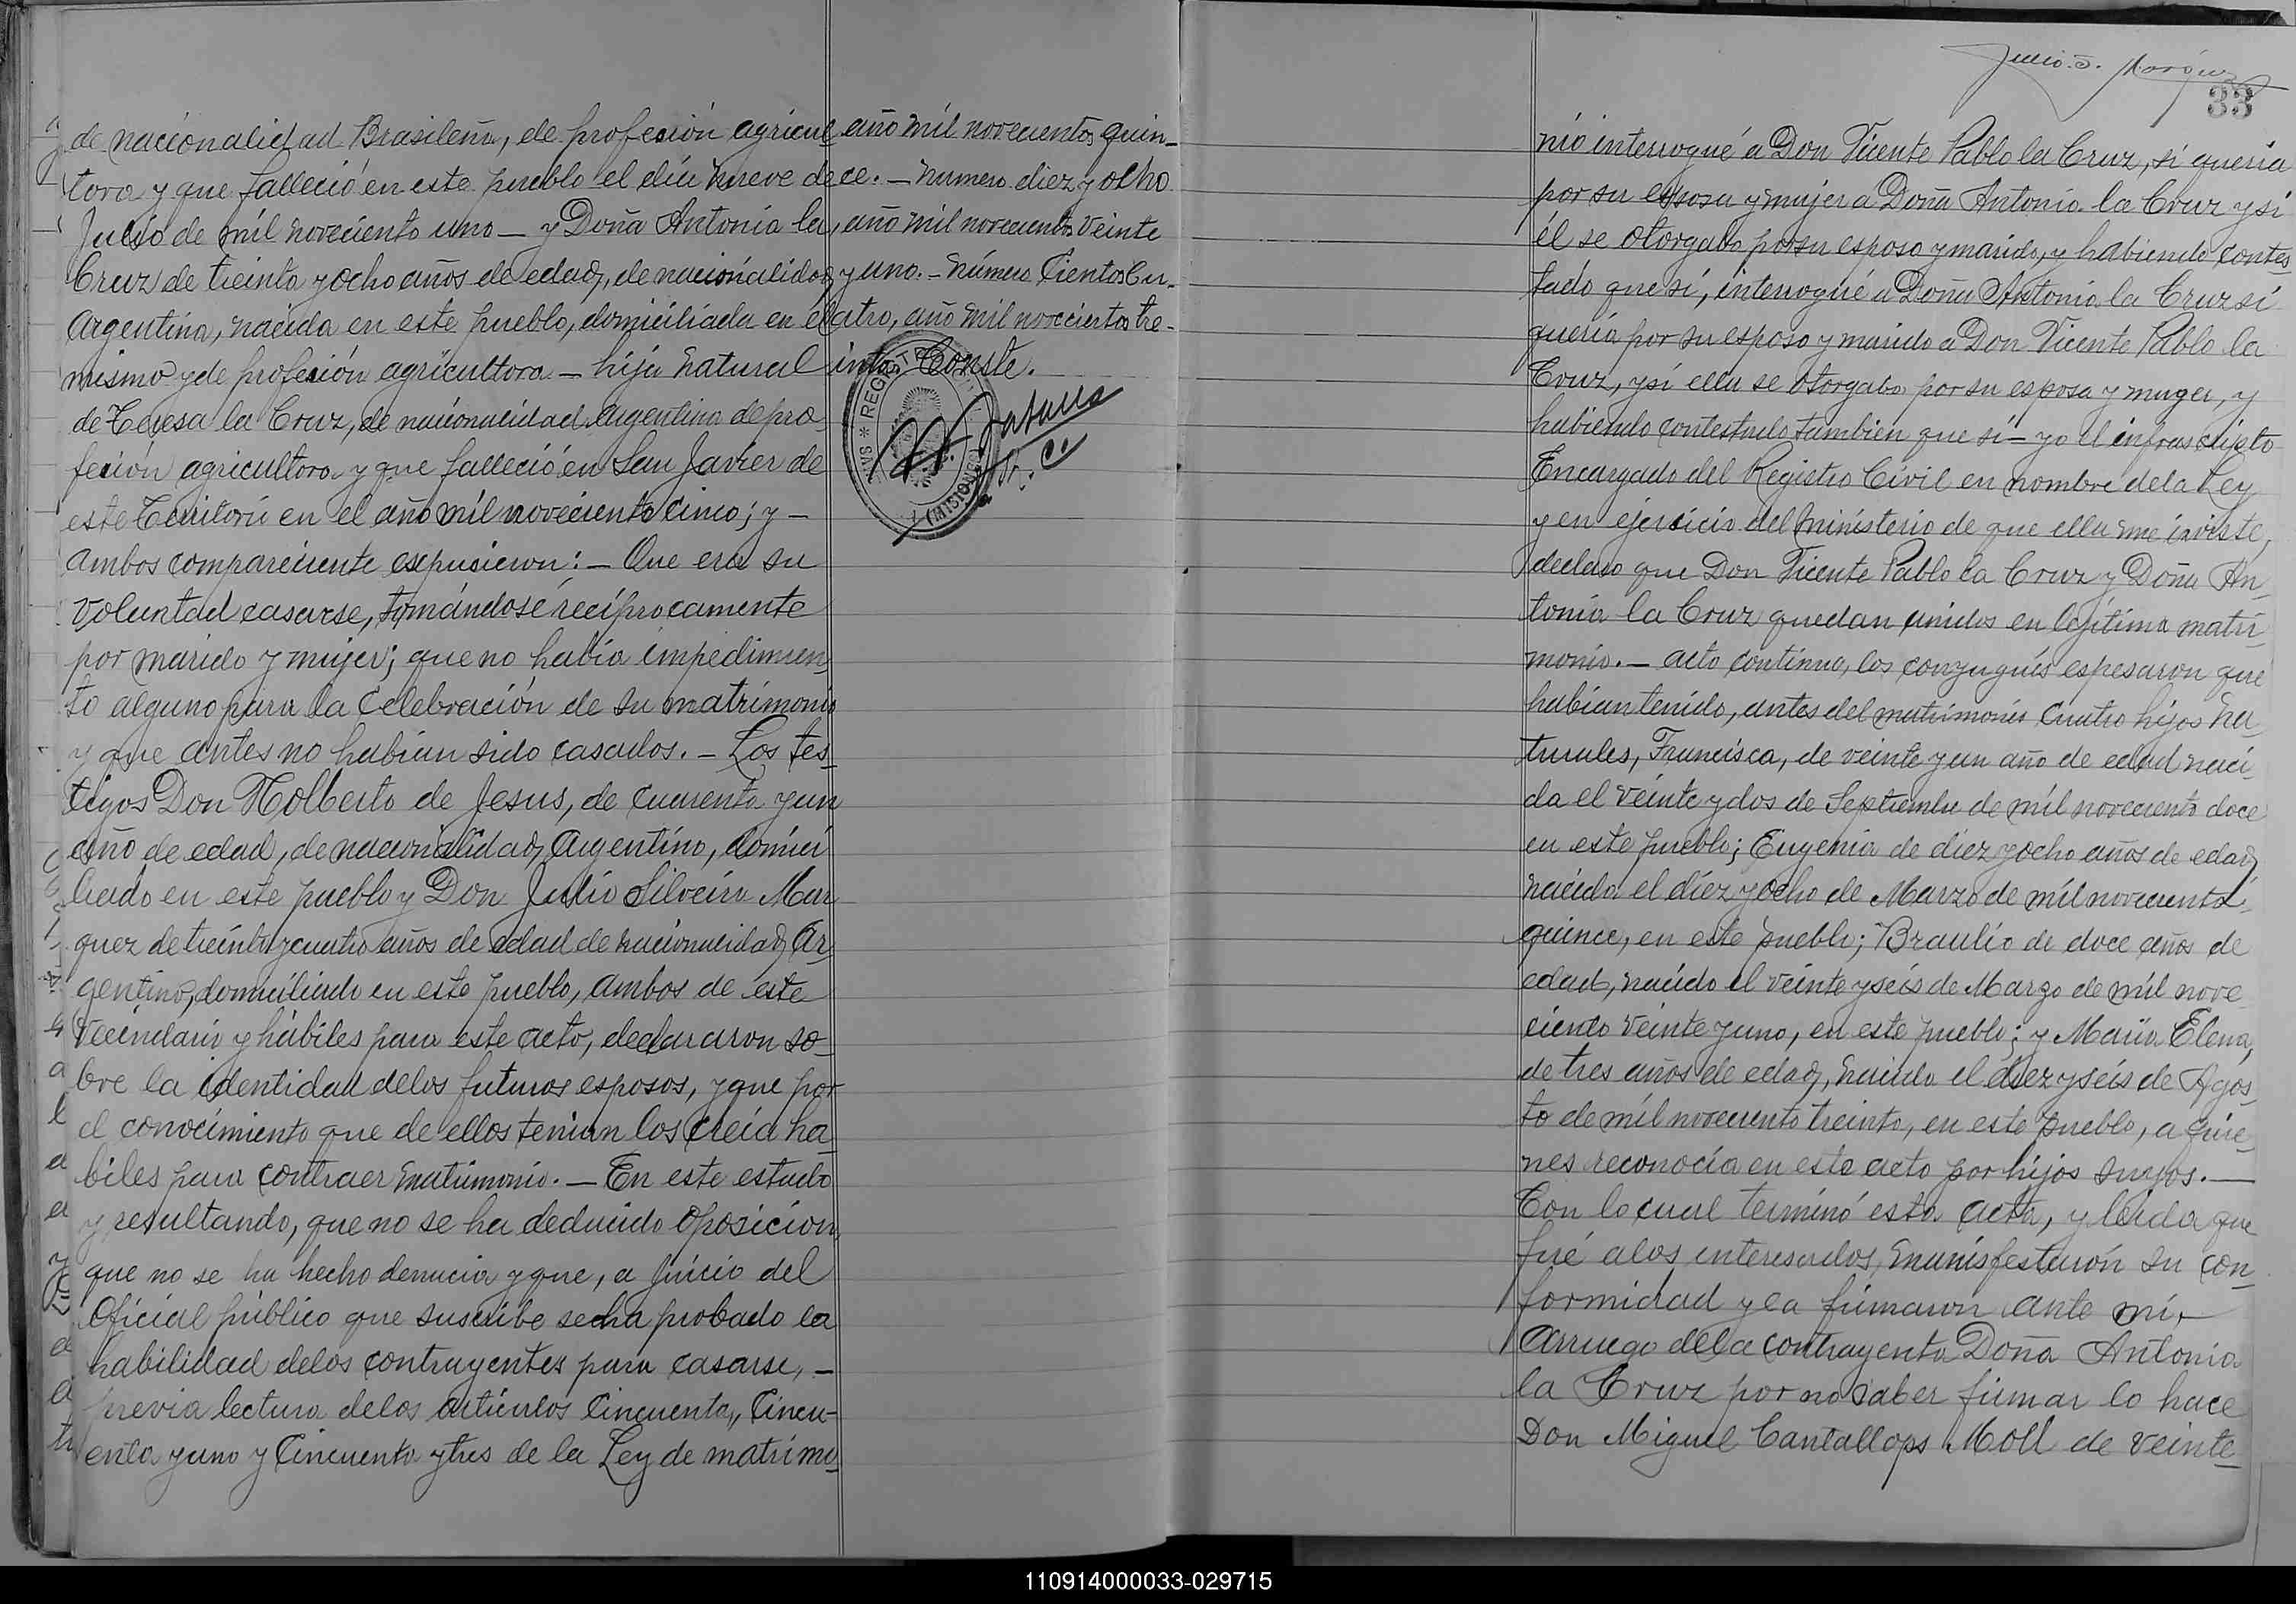 de nacionalidad Brasileña, de profesión agricul
tora y que falleció en este pueblo el día nueve de
Julio de mil noveciento uno — y Doña Antonia la
Cruz de treinta y ocho años de edad, de nacionalidad
Argentina, nacida en este pueblo, domiciliada en el
mismo y de profesión agricultora — hija natural
de Teresa la Cruz, de nacionalidad Argentina de pro
fesión agricultora y que falleció en San Javier de
este Territorio en el año mil noveciento cinco; y —
ambos compareciente expusieron: — Que era su
voluntad casarse, tomándose recíprocamente
por marido y mujer; que no había impedimen
to alguno para la celebración de su matrimonio
y que antes no habían sido casados. — Los tes_
tigos Don Nolberto de Jesus, de cuarenta y un
año de edad, de nacionalidad Argentino, domici
liado en este pueblo y Don Julio Silveira Mar
quez de treinta y cuatro años de edad de nacionalidad Ar_
gentino, domiciliado en este pueblo, ambos de este
vecindario y hábiles para este acto, declararon so_
bre la identidad de los futuros esposos, y que por
el conocimiento que de ellos tenian los creía ha_
biles para contraer matrimonio. — En este estado
y resultando, que no se ha deducido oposicion
que no se ha hecho denucia y que, a juicio del
Oficial público que suscribe se ha probado la
habilidad de los contrayentes para casarse, —
previa lectura de los artículos Cincuenta, Cincu-
enta y uno y Cincuenta y tres de la Ley de matrimo_
año mil novecientos quin_
ce. — Numero diez y ocho
año mil novecientos veinte
y uno. — Número Cientos Cu_
atro, año mil novecientos tre_
inta Conste.
REGISTRO
(MISIONES)
Julio S. Marquez
33
nio interrogué a Don Vicente Pablo la Cruz, si quería
por su esposa y mujer a Doña Antonia la Cruz y si
él se otorgaba por su esposo y marido, y habiendo contes
tado que sí, interrogué a Doña Antonia la Cruz si
quería por su esposo y marido a Don Vicente Pablo la
Cruz, y si ella se otorgaba por su esposa y muger, y
habiendo contestado tambien que sí — yo el infrascripto
Encargado del Registro Civil en nombre de la Ley
y en ejersicio del ministerio de que ella me inviste,
declaro que Don Vicente Pablo la Cruz y Doña An_
tonia la Cruz quedan unidos en legítima matri
monio. — acto continuo, los conyugués espesaron que
habían tenido, antes del matrimonio cuatro hijos na_
turales, Francisca, de veinte y un año de edad naci_
da el veinte y dos de Septiembre de mil noveciento doce
en este pueblo; Eugenia de diez y ocho años de edad,
nacida el diez y ocho de Marzo de mil noveciento
quince, en este pueblo; Braulio de doce años de
edad, nacido el veinte y seis de Marzo de mil nove_
ciento veinte y uno, en este pueblo; y María Elena,
de tres años de edad, nacida el diez y seis de Agos_
to de mil noveciento treinta, en este pueblo, a quie_
nes reconocía en este acto por hijos suyos. —
Con lo cual terminó esta acta, y leída que
fué a los interesados, manisfestarón su con_
formidad y la firmaron ante mi, —
Arruego de la contrayenta Doña Antonia
la Cruz por no saber firmar lo hace
Don Miguel Cantallops Moll de veinte_
110914000033-029715